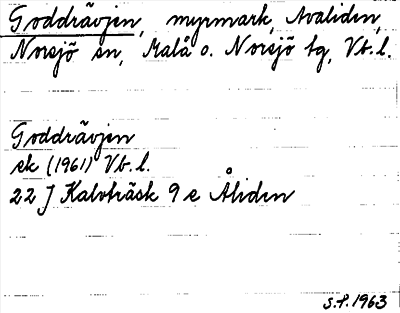 Goddrävjen, myrmark, Avaliden,
Norsjö sn, Malå o. Norsjö tg, Vb.l.
Goddrävjen
ek (1961) Vb.l.
22 J Kalvträsk 9 e Åliden
S.F. 1963